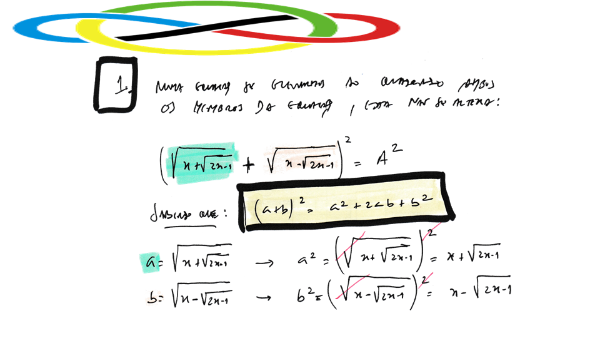 1. Numa equação se elevarmos ao quadrado ambos
os membros da equação, esta não se altera:
(√(x+√(2x-1)) + √(x-√(2x-1)))² = A²
Sabendo que: (a+b)² = a² + 2ab + b²
a = √(x+√(2x-1)) → a² = (√(x+√(2x-1)))² = x+√(2x-1)
b = √(x-√(2x-1)) → b² = (√(x-√(2x-1)))² = x-√(2x-1)